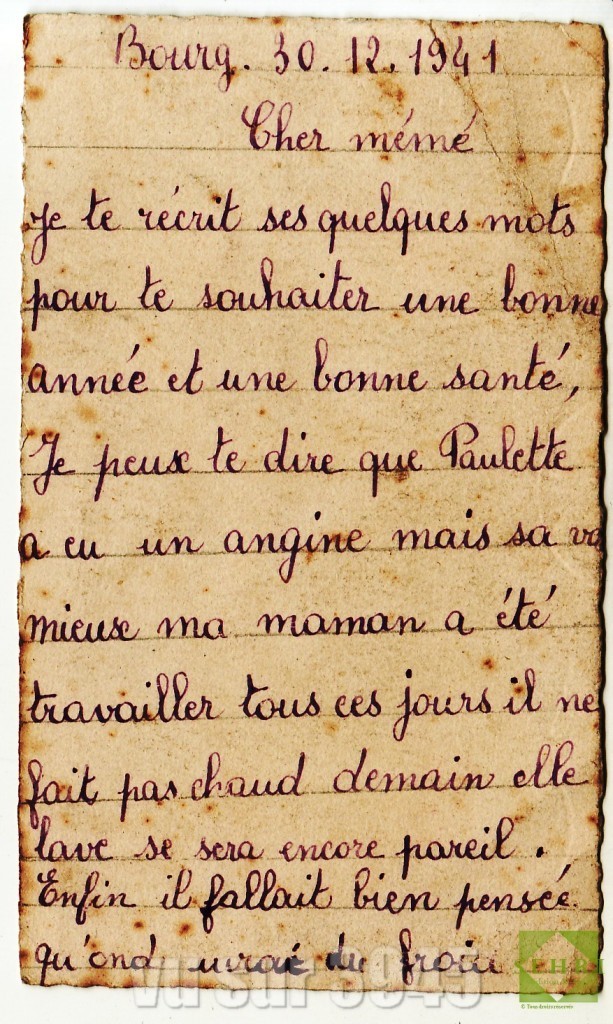 Bourg. 30. 12. 1941
Cher mémé
Je te récrit ses quelques mots
pour te souhaiter une bonne
année et une bonne santé,
Je peux te dire que Paulette
a eu un angine mais sa va
mieux ma maman a été
travailler tous ces jours il ne
fait pas chaud demain elle
lave se sera encore pareil.
Enfin il fallait bien pensée
qu'ond du froid
vu sur 3945
© Tous droits réservés